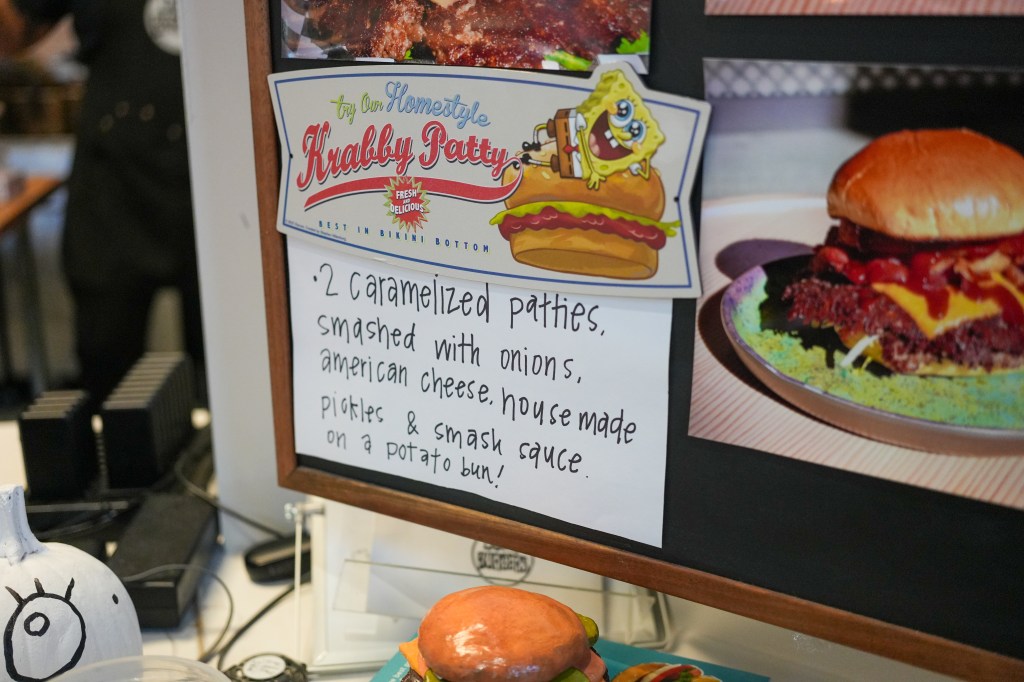 try Our Homestyle
Krabby Patty
FRESH
AND
DELICIOUS
BEST IN BIKINI BOTTOM
• 2 caramelized patties,
smashed with onions,
american cheese, housemade
pickles & smash sauce.
on a potato bun!